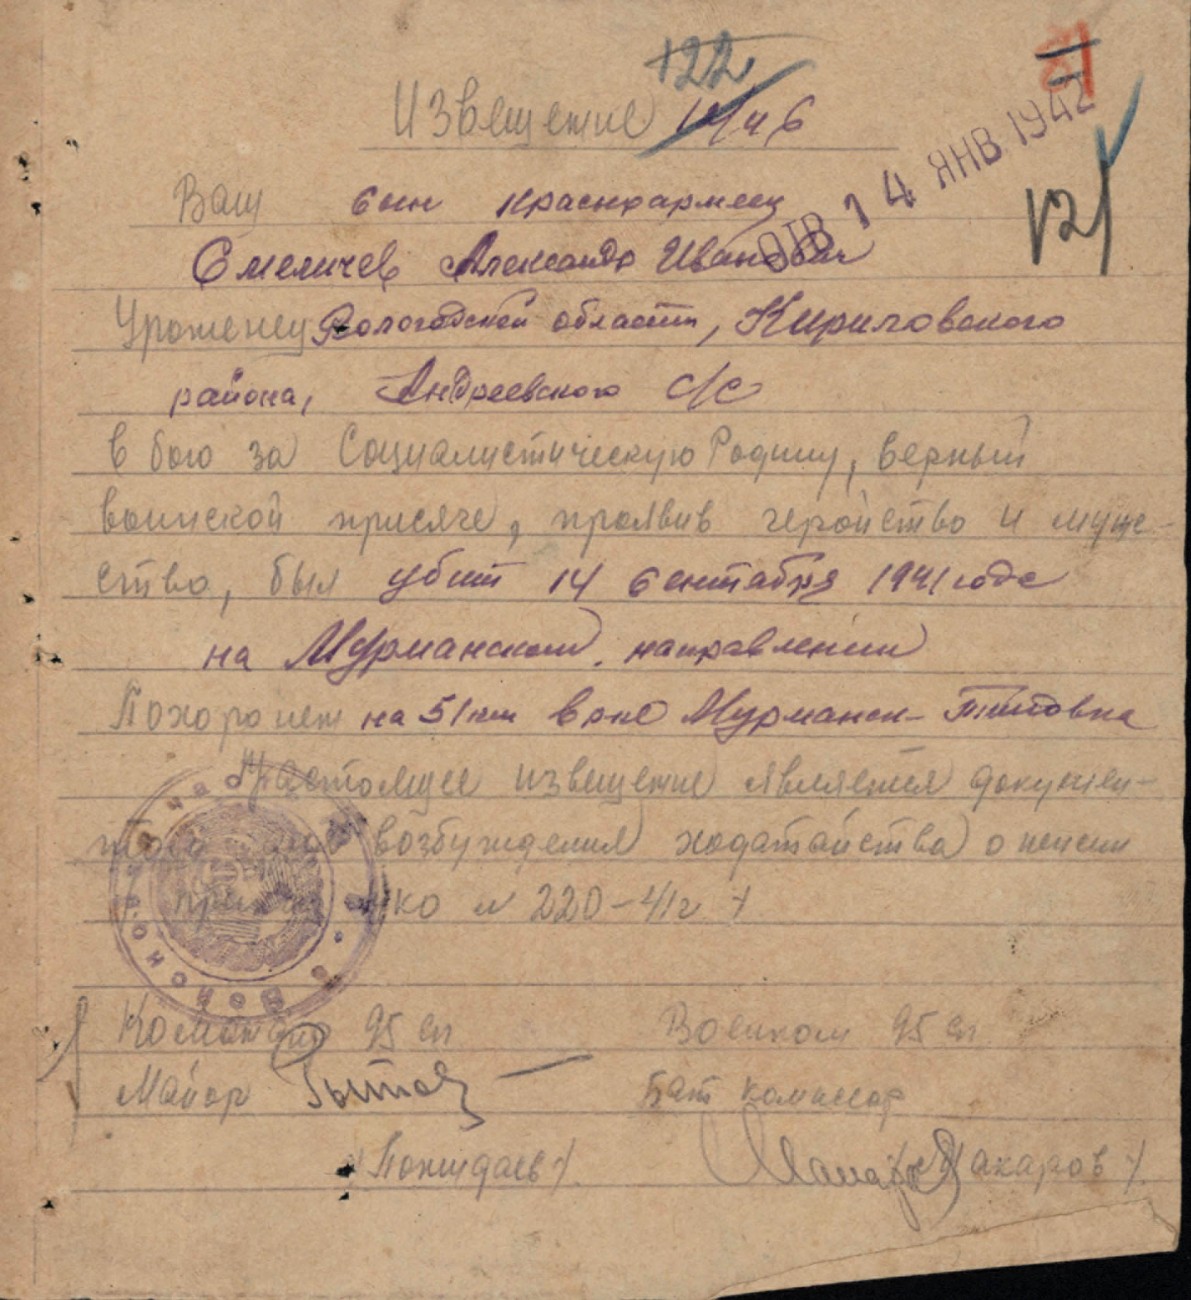 122
Извещение 14/46
ОТВ 14 ЯНВ 1942
121
Ваш сын красноармеец
Смеличев Александр Иванович
Уроженец Вологодской области, Кириловского
района, Андреевского с/с
в бою за Социалистическую Родину, верный
воинской присяге, проявив геройство и муже-
ство, был убит 14 сентября 1941 года
на Мурманском направлении
Похоронен на 51 км Мурманск-Титовка
Настоящее извещение является докумен-
том для возбуждения ходатайства о пенсии
НКО № 220-41г
Командир 95 сп Военком 95 сп
Майор Бат комиссар
/Пожидаев/ /Макаров/